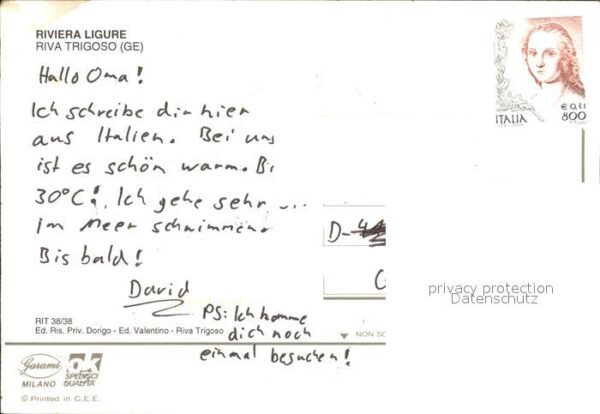 RIVIERA LIGURE
RIVA TRIGOSO (GE)
Hallo Oma!
Ich schreibe dir hier
aus Italien. Bei uns
ist es schön warm. Bi
30°C! Ich gehe sehr
im Meer schwimmen
Bis bald!
David
PS: Ich komme
dich noch
einmal besuchen!
€ 0,41
800
ITALIA
D-
privacy protection
Datenschutz
RIT 38/38
Ed. Ris. Priv. Dorigo - Ed. Valentino - Riva Trigoso
NON SC
Garami
MILANO
ok
SPEDISCI
QUALITA'
© Printed in C.E.E.